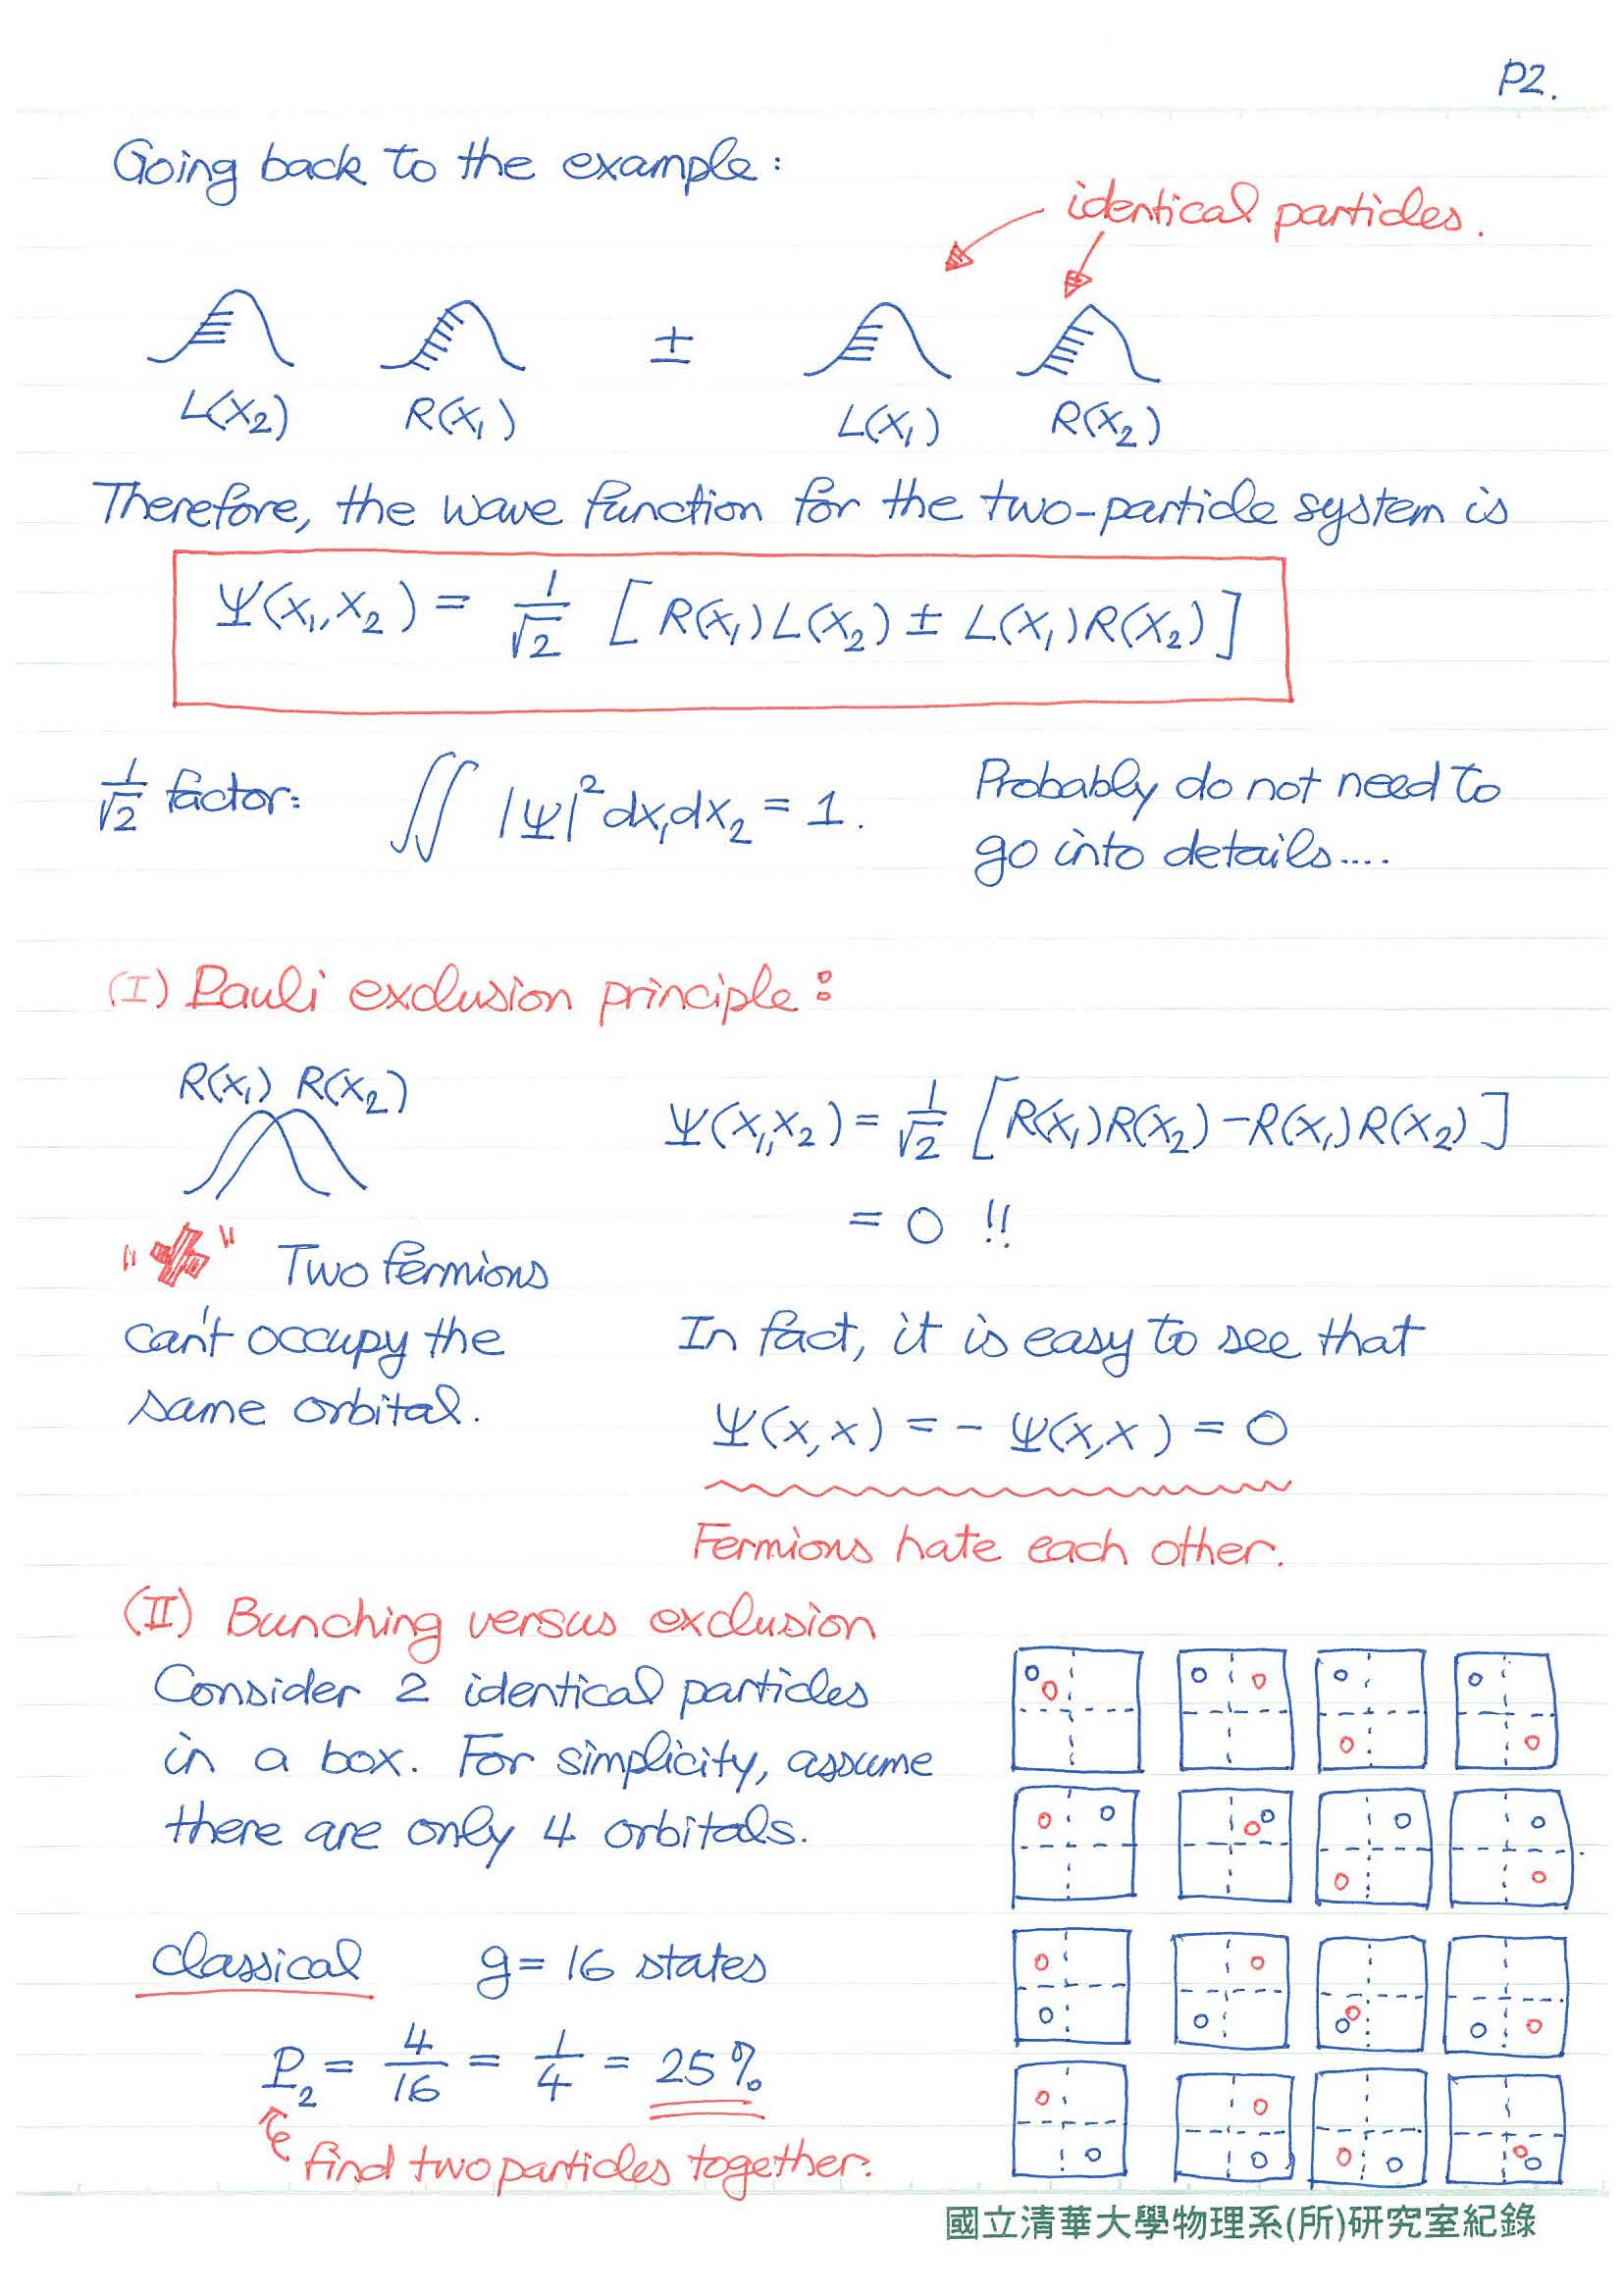 P2.
Going back to the example:
identical particles.
±
L(x₂) R(x₁) L(x₁) R(x₂)
Therefore, the wave function for the two-particle system is
Ψ(x₁,x₂) = 1/√2 [R(x₁)L(x₂) ± L(x₁)R(x₂)]
1/√2 factor: ∬ |Ψ|² dx₁dx₂ = 1.
Probably do not need to
go into details....
(I) Pauli exclusion principle:
R(x₁) R(x₂)
Ψ(x₁,x₂) = 1/√2 [R(x₁)R(x₂) - R(x₁)R(x₂)]
= 0 !!
" " Two fermions
can't occupy the
same orbital.
In fact, it is easy to see that
Ψ(x,x) = - Ψ(x,x) = 0
Fermions hate each other.
(II) Bunching versus exclusion
Consider 2 identical particles
in a box. For simplicity, assume
there are only 4 orbitals.
classical g = 16 states
P₂ = 4/16 = 1/4 = 25%
find two particles together.
國立清華大學物理系(所)研究室紀錄